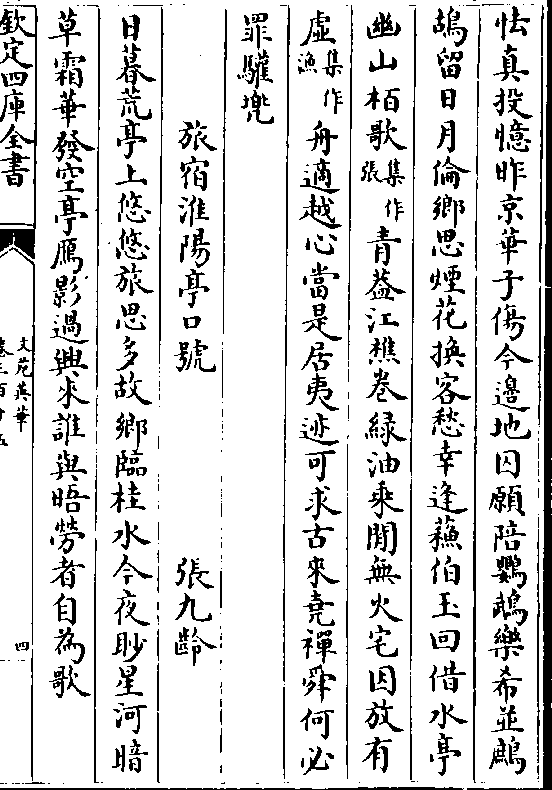 怯真投憶昨京華子傷今邊地囚願陪鸚鵡樂希並鷓
鴣留日月倫鄉思煙花換客愁幸逢蘓伯玉回借水亭
幽山栢歌集作張青葢江樵卷緑油乘閒無火宅因放有
虛集作漁舟適越心當是居夷迹可求古來堯禪舜何必
罪驩兠
旅宿淮陽亭口號 張九齡
日暮荒亭上悠悠旅思多故鄉臨桂水今夜眇星河暗
草霜華發空亭鴈影過興來誰與晤勞者自為歌
欽定四庫全書
文苑英華
四